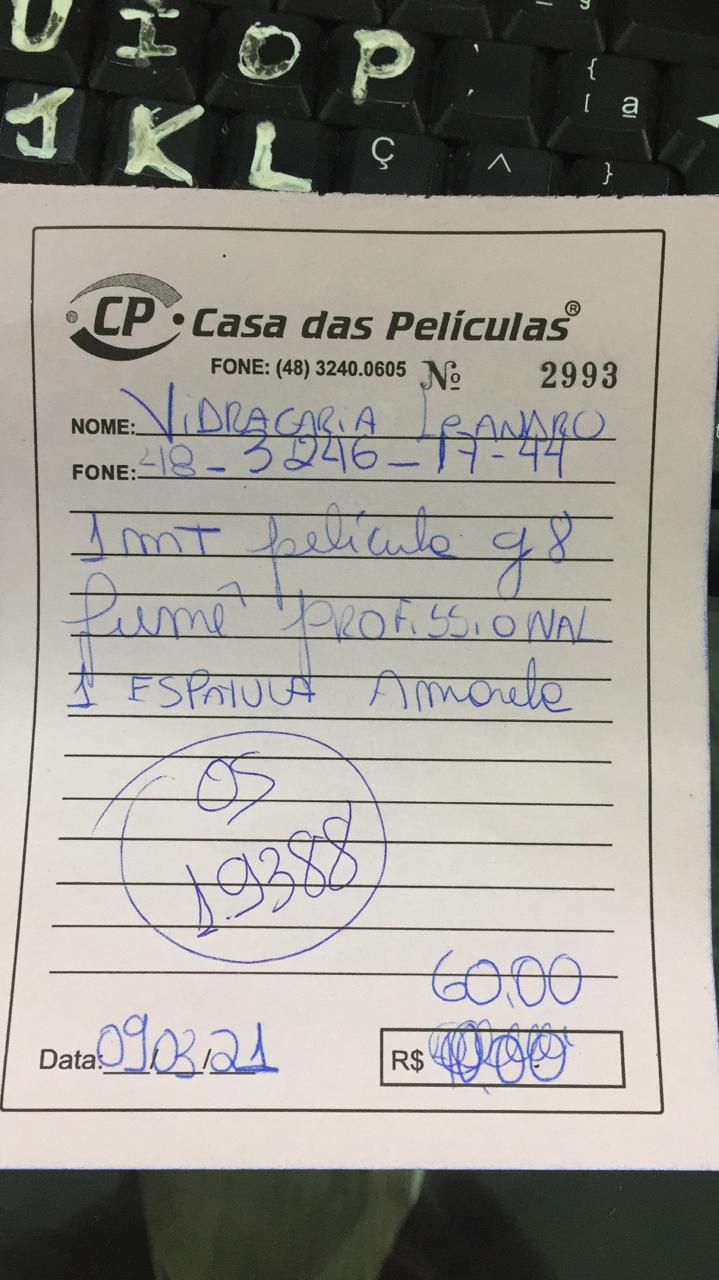 U I O P ` {
J K L Ç ^ [ ª }
CP Casa das Películas®
FONE: (48) 3240.0605 Nº 2993
NOME: VIDRACARIA LEANDRO
FONE: 48-3246-17-44
1 mT película g8
fumê PROFISSIONAL
1 ESPATULA Amarela
OS
19388
60,00
Data: 09/03/21 R$